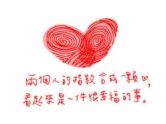 兩個人的指紋合成一顆心,
看起來是一件很幸福的事。